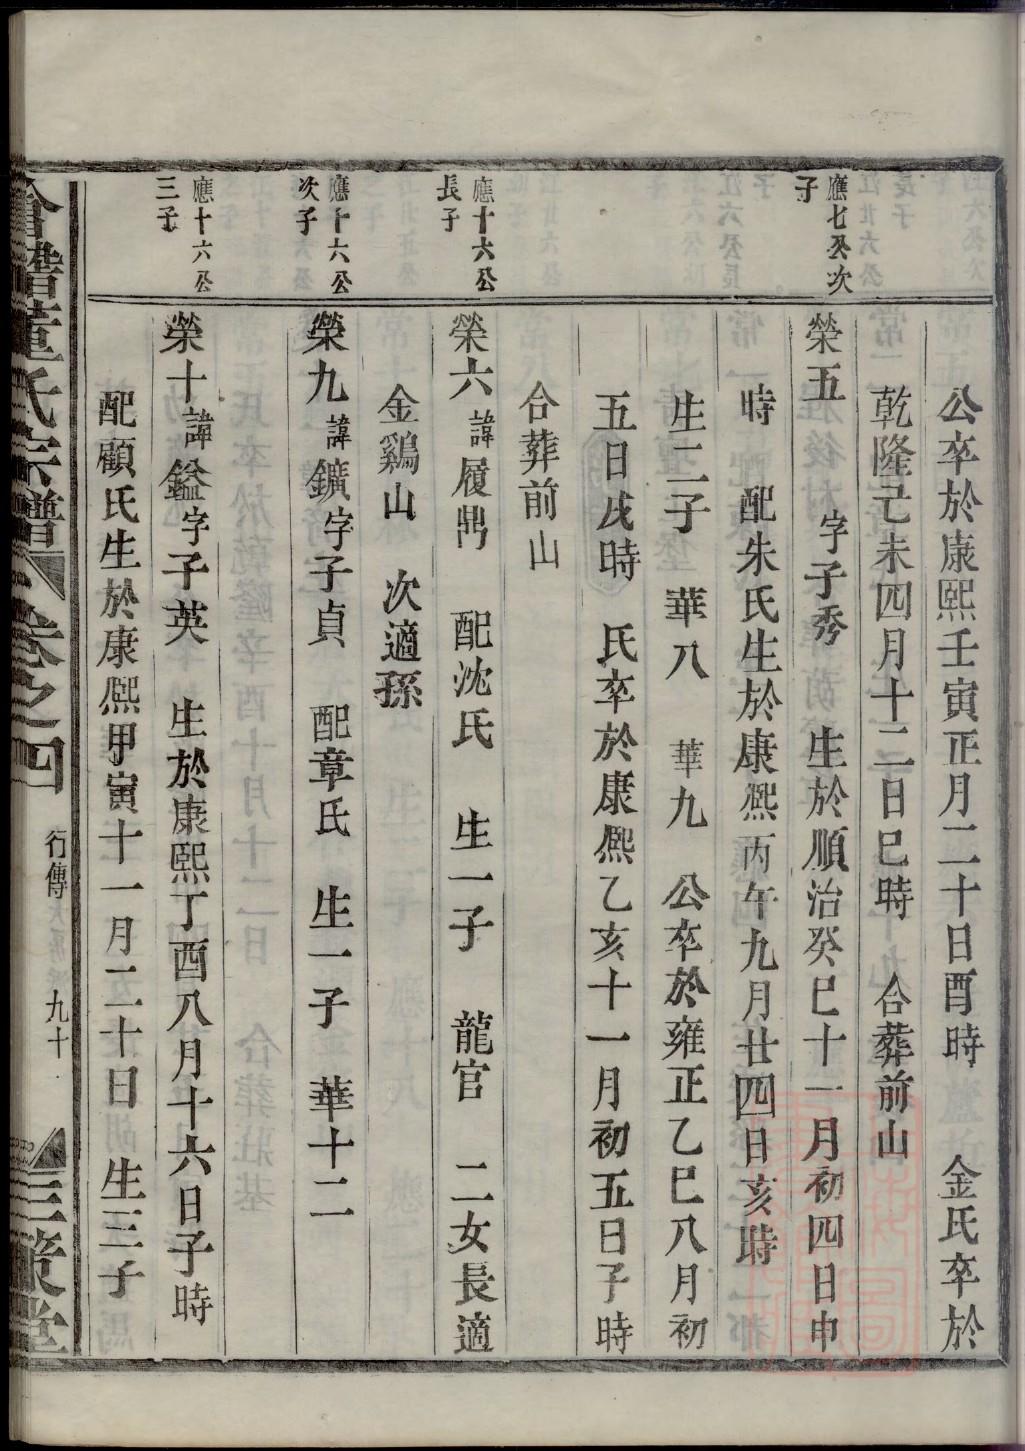 公卒於康熙壬寅正月二十日酉時 金氏卒於
乾隆己未四月十二日巳時 合葬前山
應七公次
子
榮五 字子秀 生於順治癸巳十一月初四日申
時 配朱氏生於康熙丙午九月廿四日亥時
生二子 華八 華九 公卒於雍正乙巳八月初
五日戌時 氏卒於康熙乙亥十一月初五日子時
合葬前山
應十六公
長子
榮六諱履鼎 配沈氏 生一子 龍官 二女長適
金鷄山 次適孫
應十六公
次子
榮九諱鑛字子貞 配章氏 生一子 華十二
應十六公
三子
榮十諱鎰字子英 生於康熙丁酉八月十六日子時
配顧氏生於康熙甲寅十一月二十日 生三子
會稽董氏宗譜 卷之四 行傳 九十 三策堂